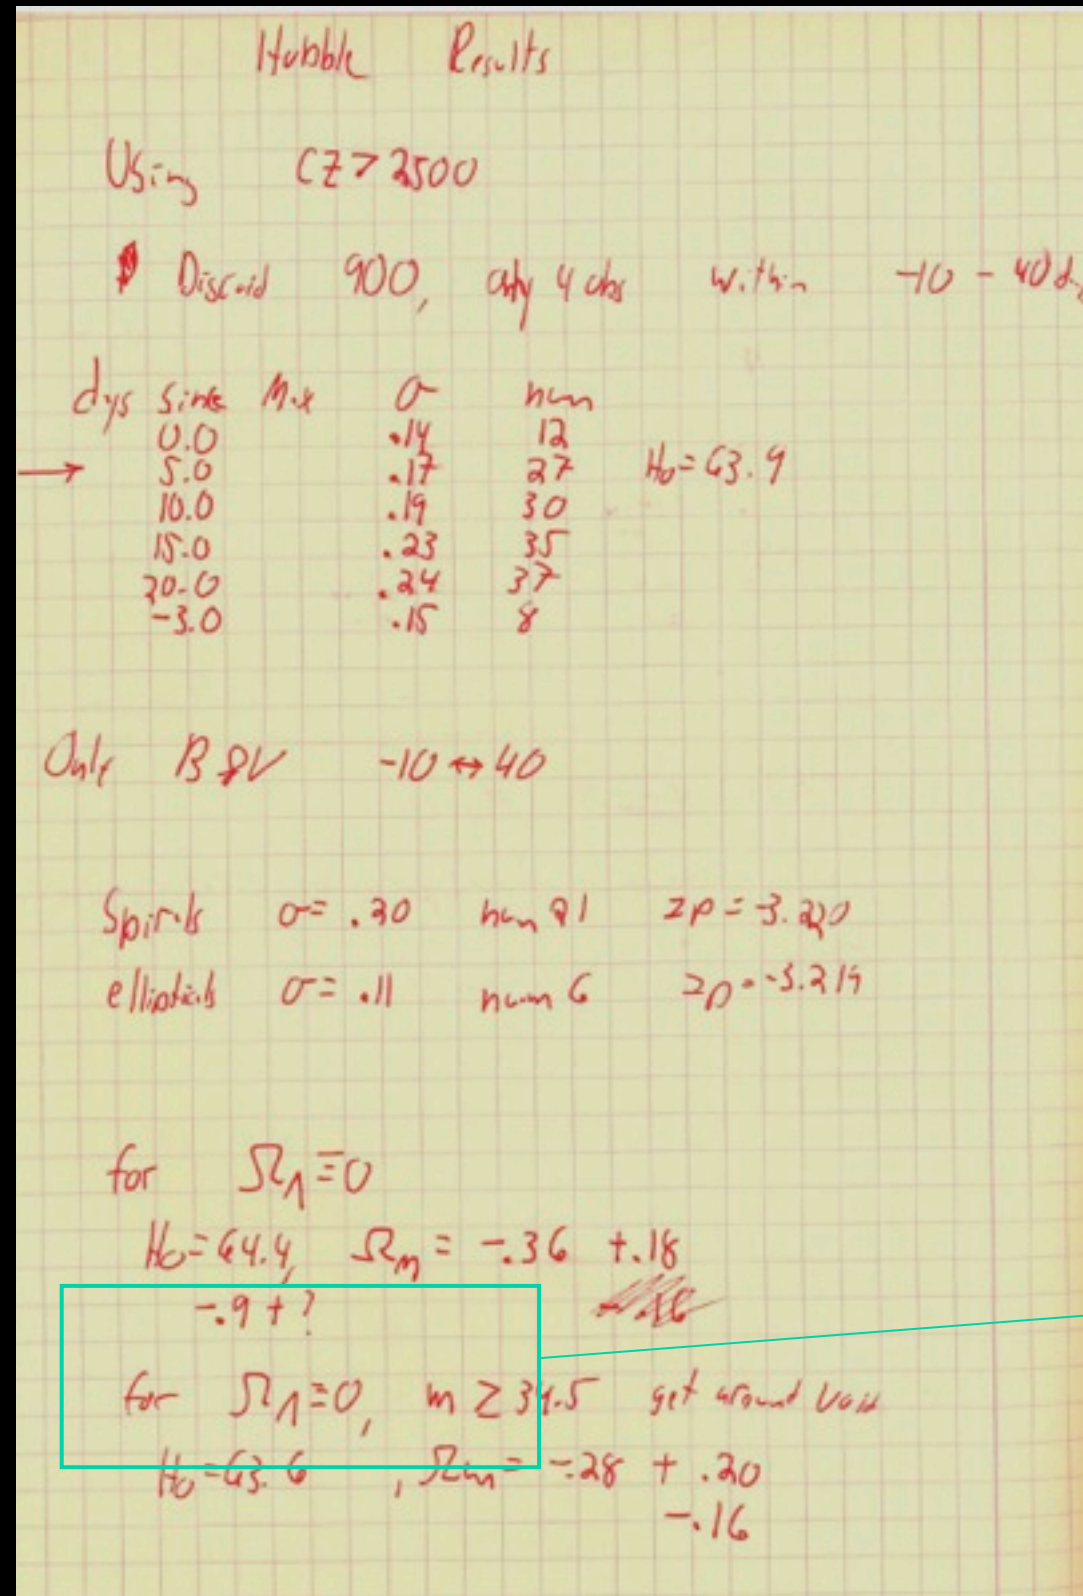 Hubble Results
Using CZ > 2500
Discoid 900, only 4 obs within -10 - 40 d
dys since Max σ num
0.0 .14 12
→ 5.0 .17 27 H₀ = 63.9
10.0 .19 30
15.0 .23 35
20.0 .24 37
-3.0 .15 8
Only B & V -10 ↔ 40
Spirals σ = .20 num 21 zp = -3.220
ellipticals σ = .11 num 6 zp = -3.219
for Ω_Λ ≡ 0
H₀ = 64.4, Ω_m = -.36 + .18
-.9 + ?
for Ω_Λ ≡ 0, m ≥ 34.5 get around Void
H₀ = 63.6, Ω_m = -.28 + .20
-.16